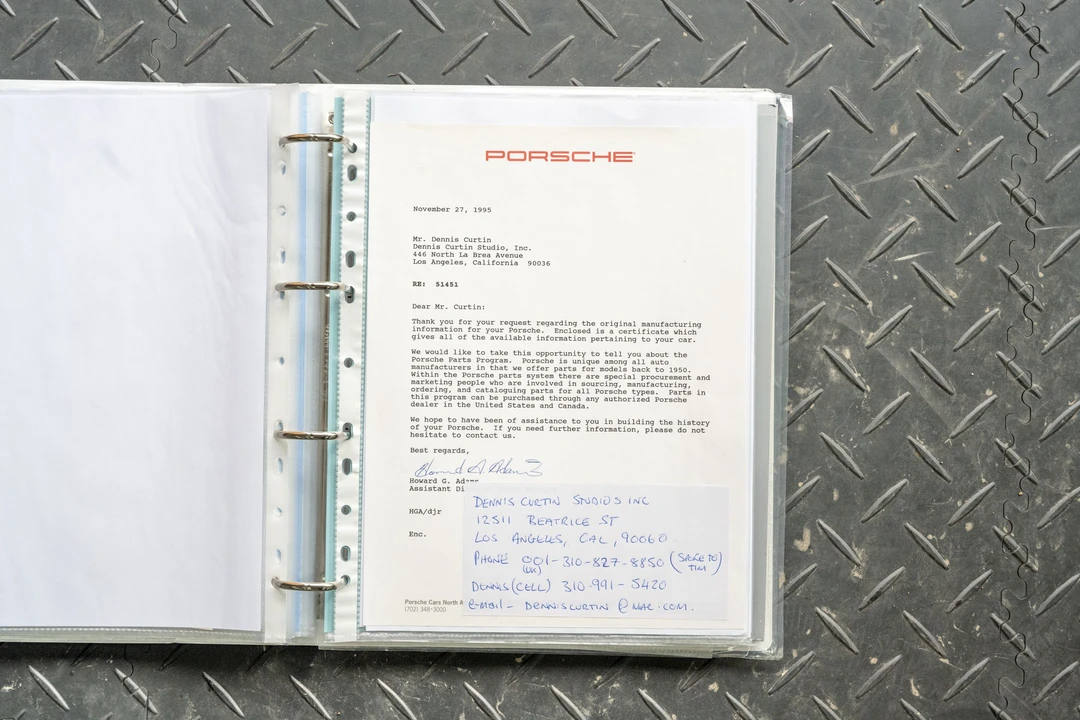 PORSCHE
November 27, 1995
Mr. Dennis Curtin
Dennis Curtin Studio, Inc.
446 North La Brea Avenue
Los Angeles, California 90036
RE: 51451
Dear Mr. Curtin:
Thank you for your request regarding the original manufacturing
information for your Porsche. Enclosed is a certificate which
gives all of the available information pertaining to your car.
We would like to take this opportunity to tell you about the
Porsche Parts Program. Porsche is unique among all auto
manufacturers in that we offer parts for models back to 1950.
Within the Porsche parts system there are special procurement and
marketing people who are involved in sourcing, manufacturing,
ordering, and cataloguing parts for all Porsche types. Parts in
this program can be purchased through any authorized Porsche
dealer in the United States and Canada.
We hope to have been of assistance to you in building the history
of your Porsche. If you need further information, please do not
hesitate to contact us.
Best regards,
Howard G. Adams
Assistant Di
HGA/djr
Enc.
Porsche Cars North A
(702) 348-3000
DENNIS CURTIN STUDIOS INC
12511 BEATRICE ST
LOS ANGELES, CAL, 90060
PHONE 001-310-827-8850 (SPOKE TO
(UK) TIM)
DENNIS (CELL) 310-991-5420
e-mail - DENNISCURTIN @ MAC.COM.